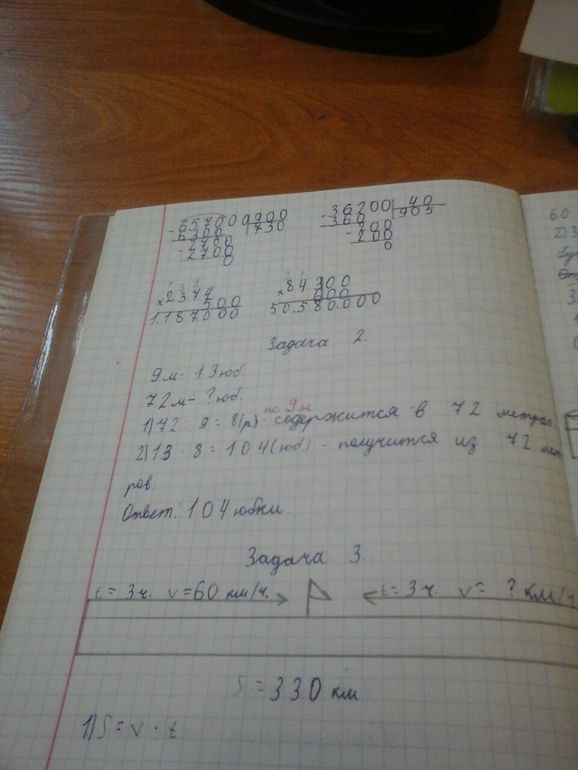 657000 | 900
- 6300 | 730
- 2700
2700
0
- 36200 | 40
360 | 905
- 200
200
0
× 2374
500
1.187000
× 84300
600
50.580.000
Задача 2.
9м - 13юб.
72м - ? юб.
1) 72 : 9 = 8(р) - по 9м содержится в 72 метрах
2) 13 · 8 = 104(юб) - получится из 72 мет
ров.
Ответ. 104 юбки.
Задача 3.
t = 3ч. v = 60 км/ч. t = 3ч. v = ? км/ч
S = 330 км
1) S = v · t
60
2) 3